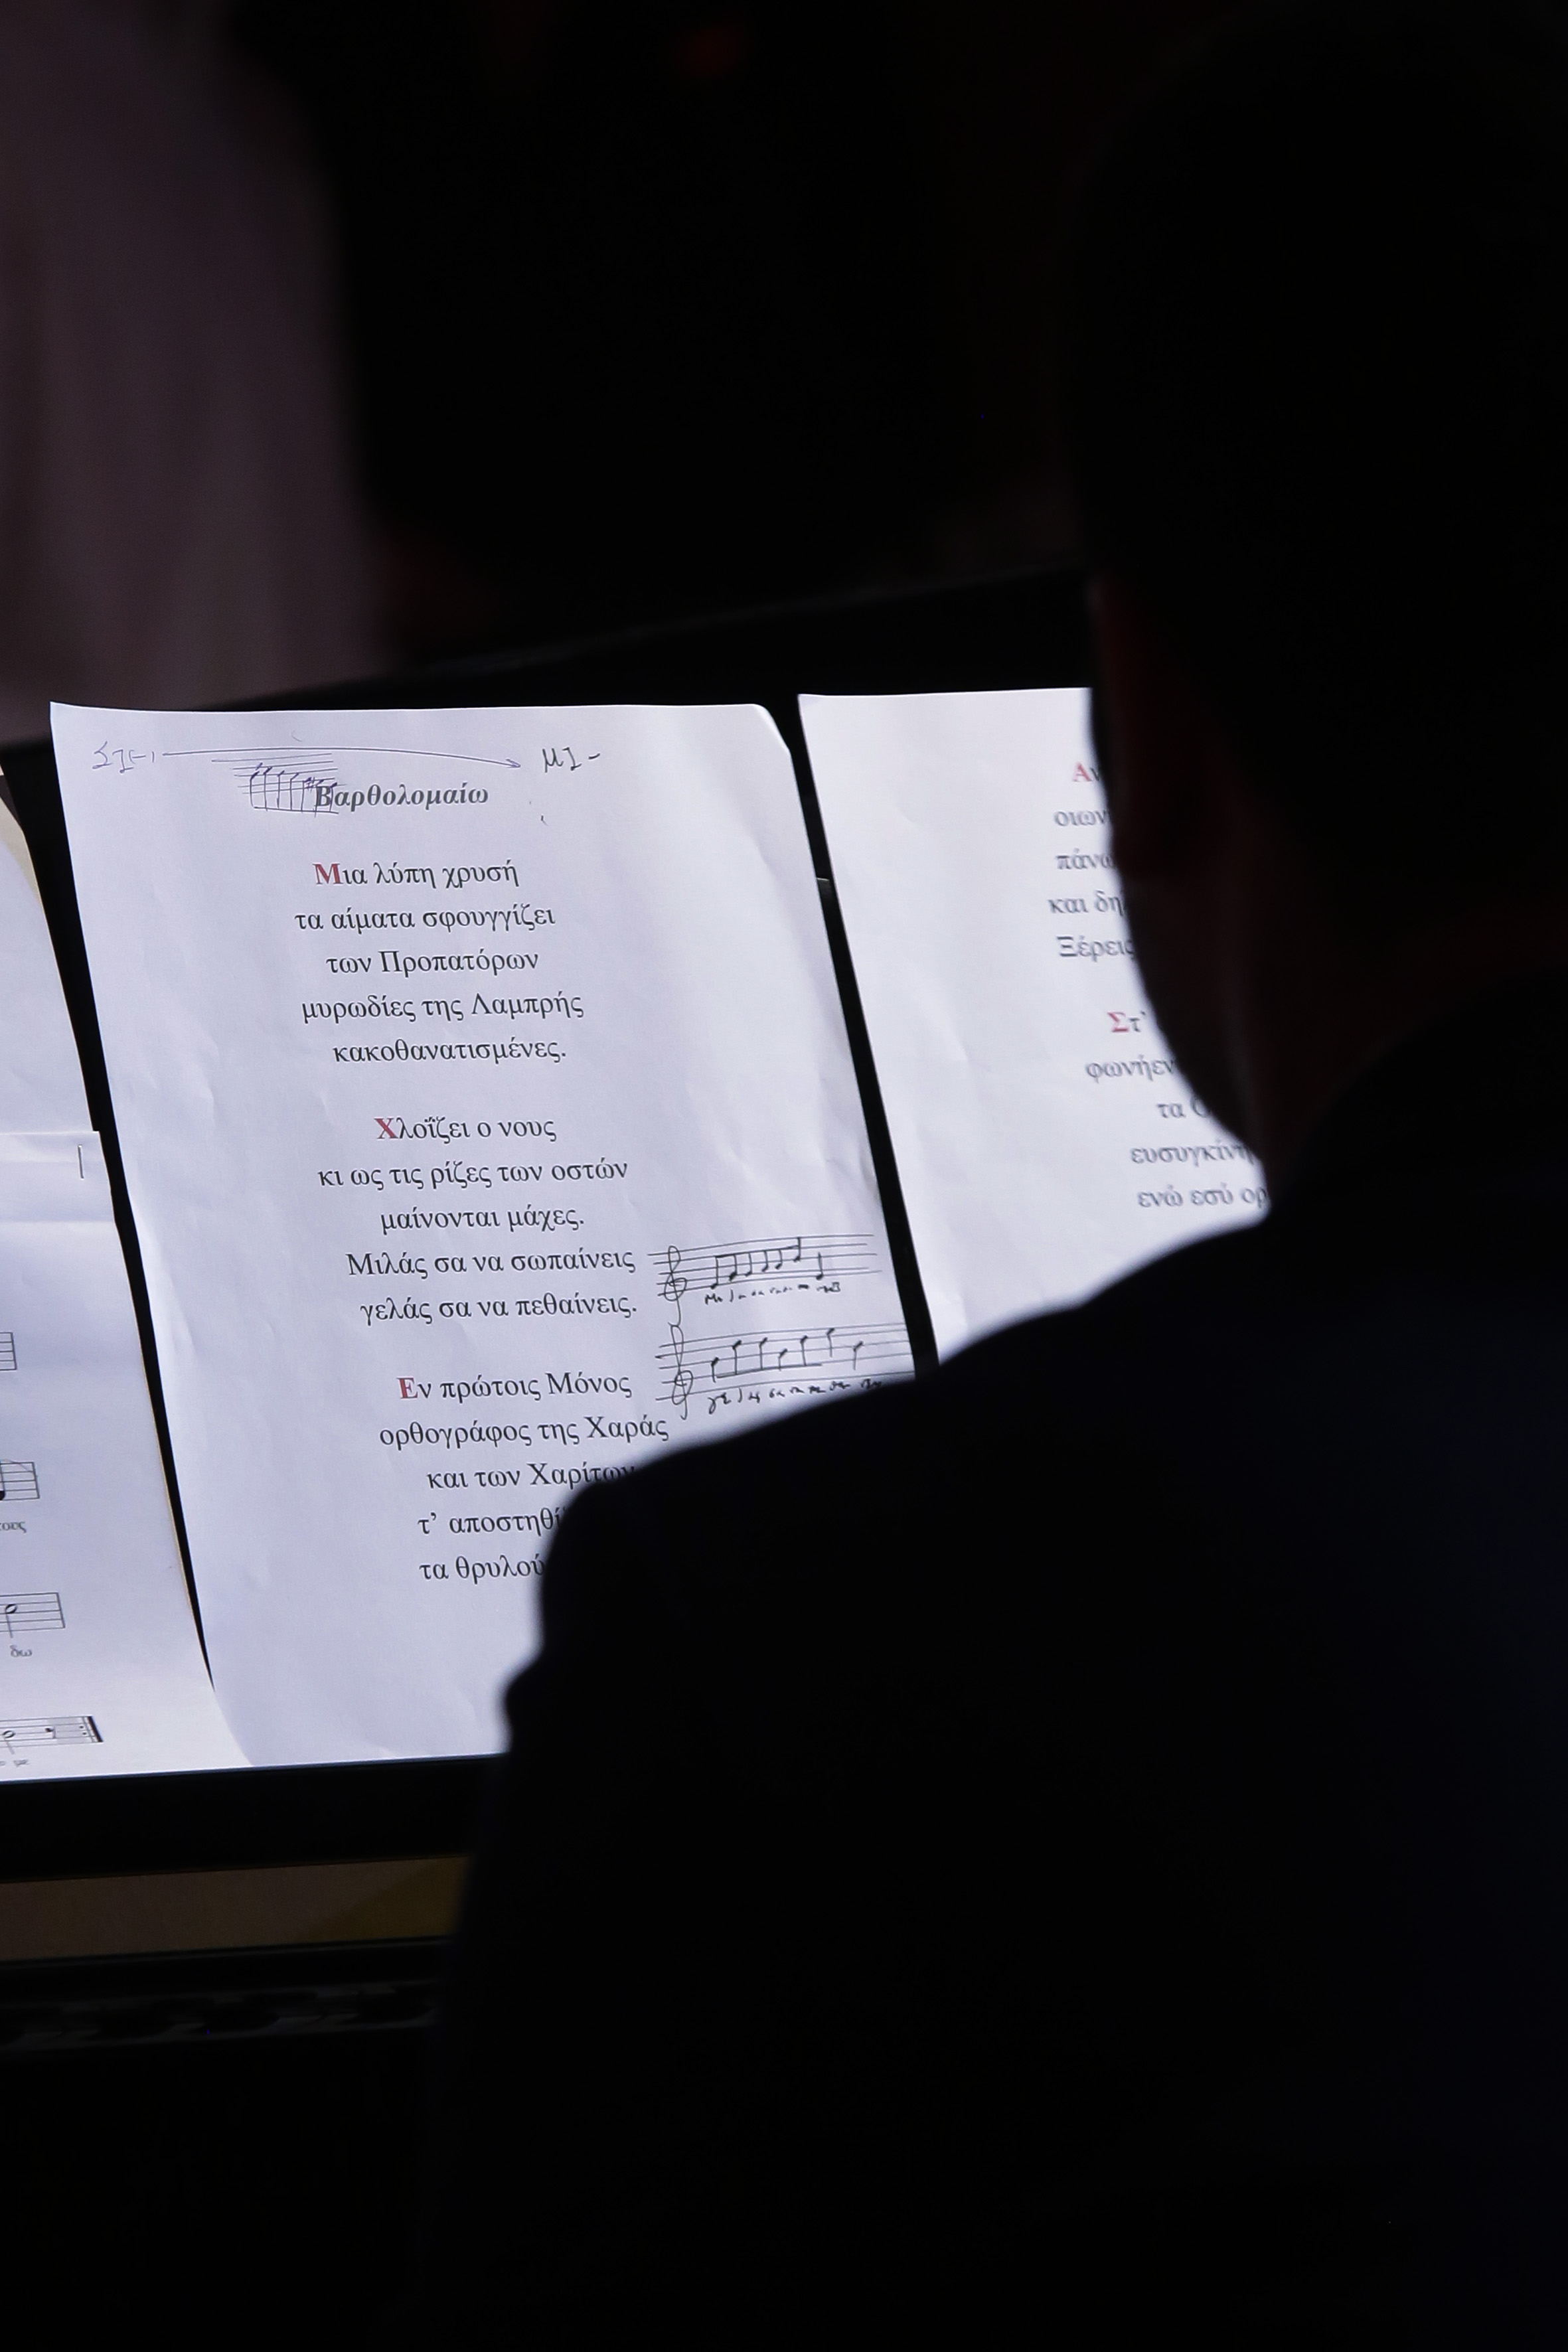 ΣΙ(-) ΜΙ-
Βαρθολομαίω
Μια λύπη χρυσή
τα αίματα σφουγγίζει
των Προπατόρων
μυρωδίες της Λαμπρής
κακοθανατισμένες.
Χλοΐζει ο νους
κι ως τις ρίζες των οστών
μαίνονται μάχες.
Μιλάς σα να σωπαίνεις
γελάς σα να πεθαίνεις.
Εν πρώτοις Μόνος
ορθογράφος της Χαράς
και των Χαρίτων
τ’ αποστηθί
τα θρυλού
οιων
πάνω
και δη
Ξέρεις
Στ’
φωνήεν
τα
ευσυγκίνη
ενώ εσύ ορ
τους
δω
με